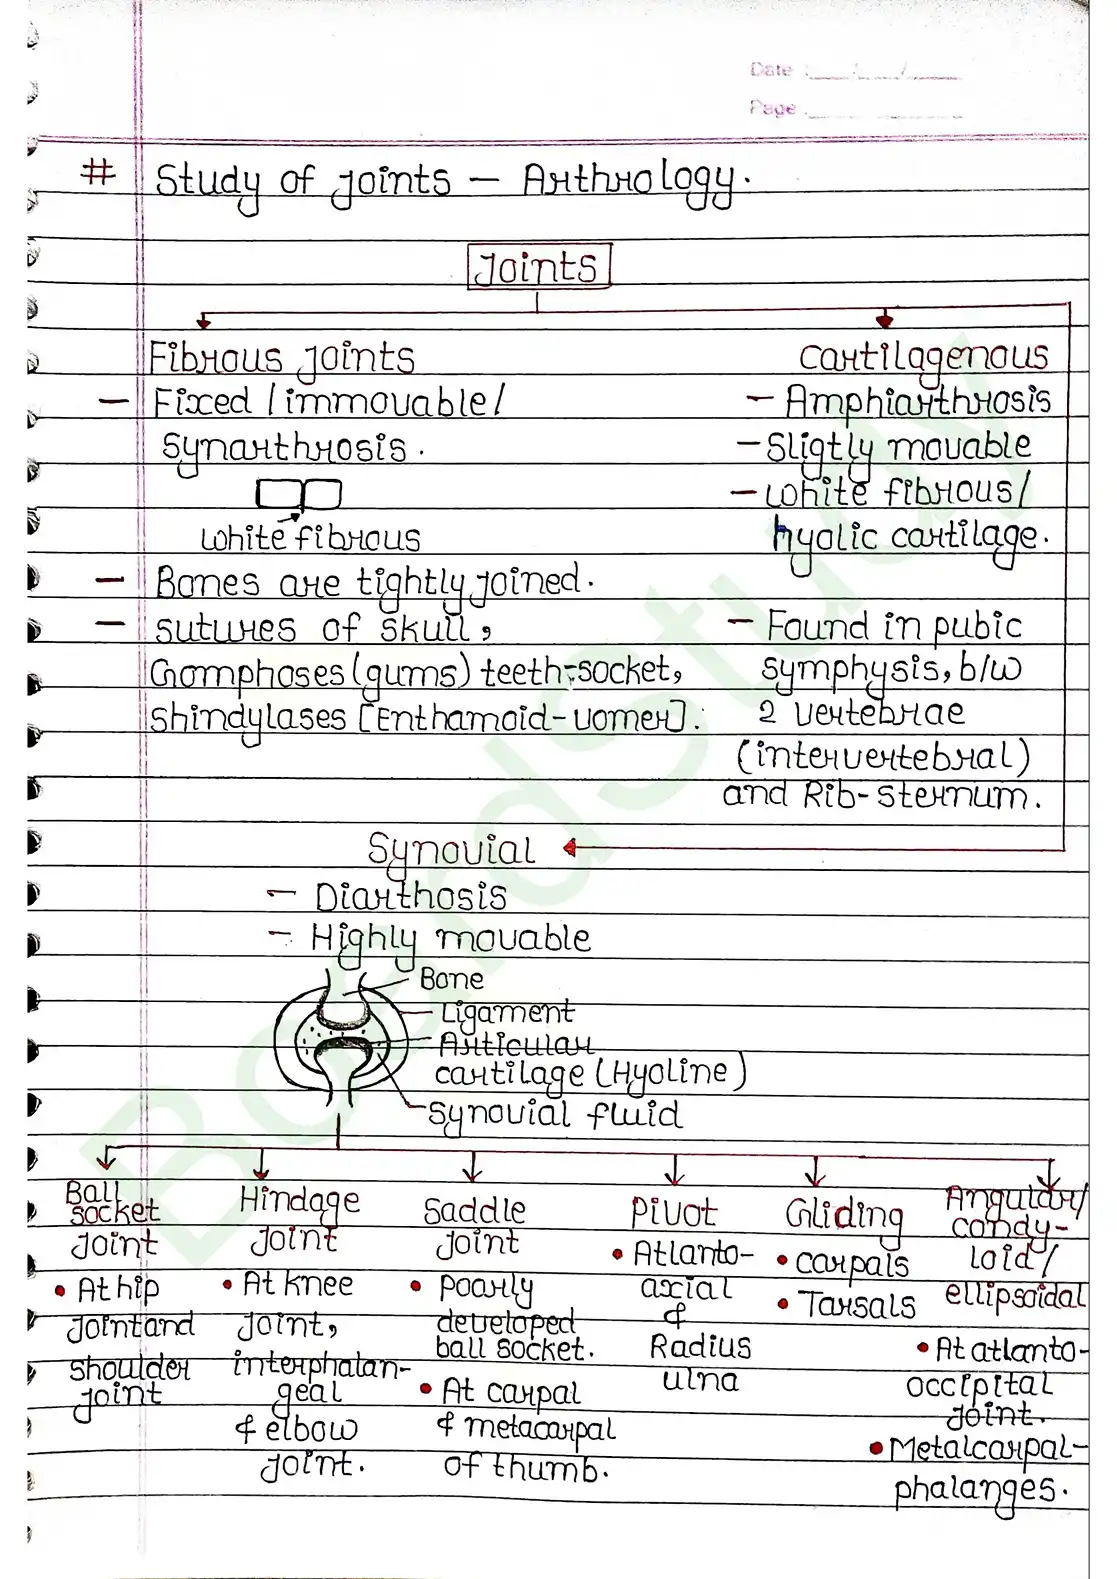 Date : ___/___/___
Page : ___
# Study of joints — Arthrology.
Joints
Fibrous joints
— Fixed / immovable /
synarthrosis.
white fibrous
— Bones are tightly joined.
— sutures of skull,
Gomphoses (gums) teeth-socket,
shindylases [Enthamoid-vomer].
cartilagenous
— Amphiarthrosis
— Sligtly movable
— white fibrous/
hyalic cartilage.
— Found in pubic
symphysis, b/w
2 vertebrae
(intervertebral)
and Rib-sternum.
Synovial
— Diarthosis
— Highly movable
Bone
Ligament
Articular
cartilage (Hyoline)
Synovial fluid
Ball
socket
joint
• At hip
joint and
shoulder
joint
Hindage
joint
• At knee
joint,
interphalan-
geal
& elbow
joint.
Saddle
joint
• poorly
developed
ball socket.
• At carpal
& metacarpal
of thumb.
Pivot
• Atlanto-
axial
&
Radius
ulna
Gliding
• carpals
• Tarsals
Angular/
condy-
loid/
ellipsoidal
• At atlanto-
occipital
joint.
• Metalcarpal-
phalanges.
BoardStudy